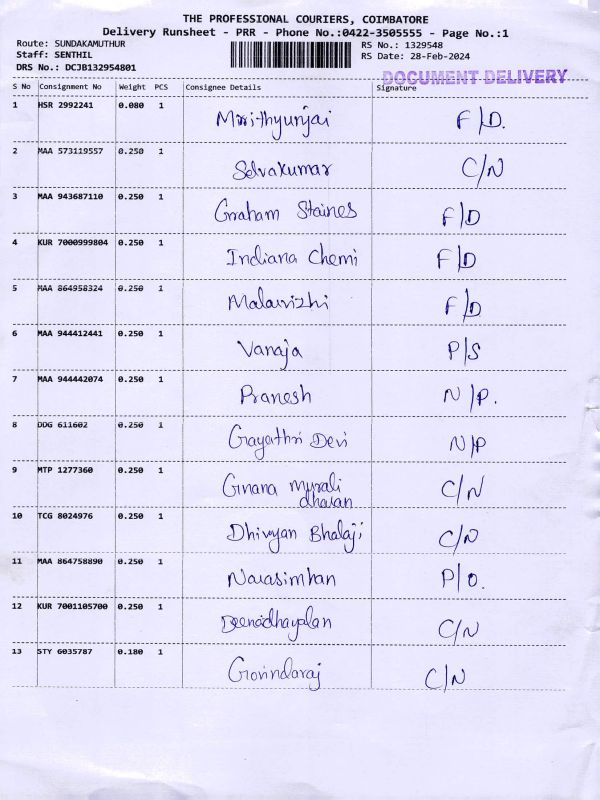 THE PROFESSIONAL COURIERS, COIMBATORE
Delivery Runsheet - PRR - Phone No.:0422-3505555 - Page No.:1
Route: SUNDAKAMUTHUR RS No.: 1329548
Staff: SENTHIL RS Date: 28-Feb-2024
DRS No.: DCJB132954801
DOCUMENT DELIVERY
S No Consignment No Weight PCS Consignee Details Signature
1 HSR 2992241 0.080 1 Mrithyunjai F/D.
2 MAA 573119557 0.250 1 Selvakumar C/N
3 MAA 943687110 0.250 1 Graham Staines F/D
4 KUR 7000999804 0.250 1 Indiana Chemi F/D
5 MAA 864958324 0.250 1 Malarvizhi F/D
6 MAA 944412441 0.250 1 Vanaja P/S
7 MAA 944442074 0.250 1 Pranesh N/P.
8 DDG 611602 0.250 1 Gayathri Devi N/P
9 MTP 1277360 0.250 1 Gnana Murali C/N
dharan
10 TCG 8024976 0.250 1 Dhivyan Bhalaji C/N
11 MAA 864758890 0.250 1 Narasimhan P/O.
12 KUR 7001105700 0.250 1 Deenadhayalan C/N
13 STY 6035787 0.180 1 Govindaraj C/N